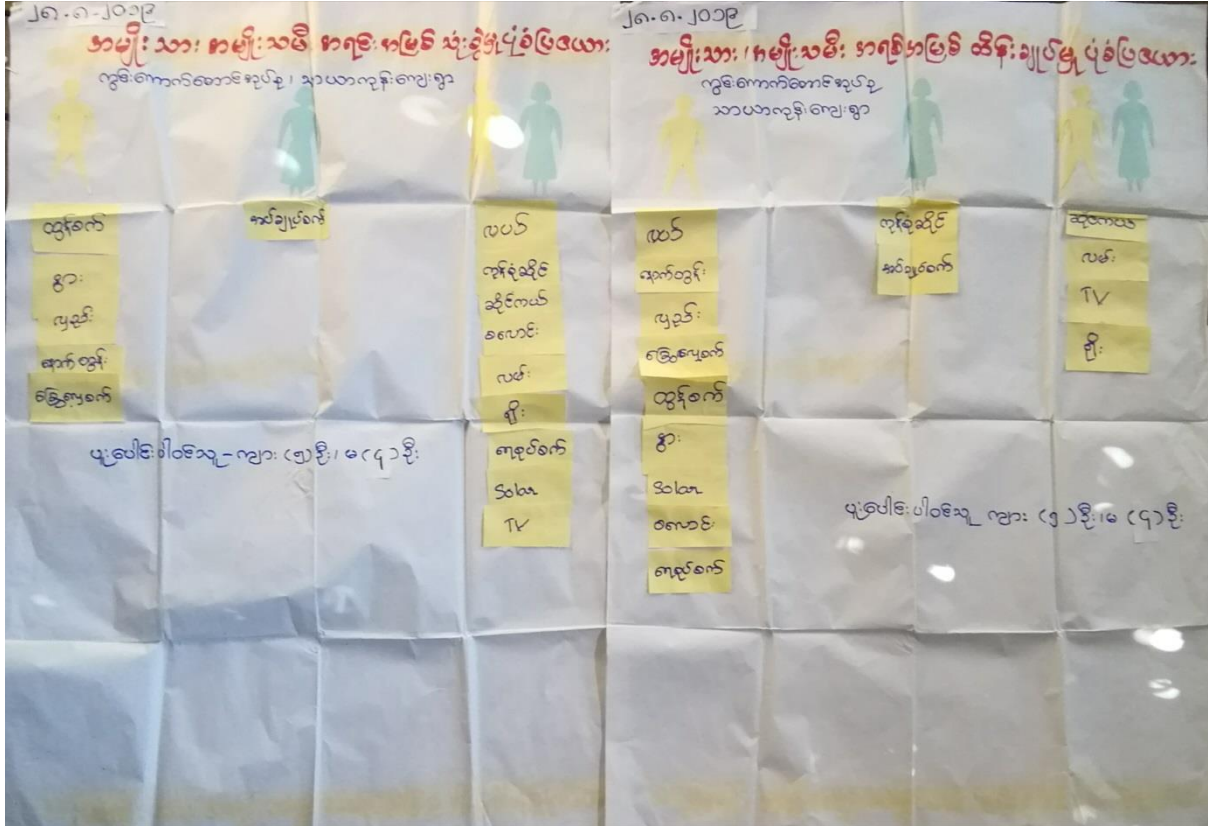 ၂၆.၈.၂၀၁၉
အမျိုးသား အမျိုးသမီး အရင်းအမြစ် သုံးစွဲမှုပုံစံပြဇယား
ကွင်းကောက်တောင်အုပ်စု၊ သာယာကုန်းကျေးရွာ
ထွန်စက်
နွား
လှည်း
နောက်တွန်း
ခြွေလှေ့စက်
အပ်ချုပ်စက်
လယ်
ကုန်စုံဆိုင်
ဆိုင်ကယ်
စလောင်း
လမ်း
မျိုး
ရေစုပ်စက်
Solar
TV
ပူးပေါင်းပါဝင်သူ-ကျား (၅)ဦး၊ မ(၄)ဦး
၂၆.၈.၂၀၁၉
အမျိုးသား၊ အမျိုးသမီး အရင်းအမြစ် ထိန်းချုပ်မှု ပုံစံပြဇယား
ကွင်းကောက်တောင်အုပ်စု
သာယာကုန်းကျေးရွာ
လယ်
နောက်တွန်း
လှည်း
ခြွေလှေ့စက်
ထွန်စက်
နွား
Solar
စလောင်း
ရေစုပ်စက်
ကုန်စုံဆိုင်
အပ်ချုပ်စက်
ဆိုင်ကယ်
လမ်း
TV
မျိုး
ပူးပေါင်းပါဝင်သူ ကျား (၅)ဦး၊မ (၄)ဦး